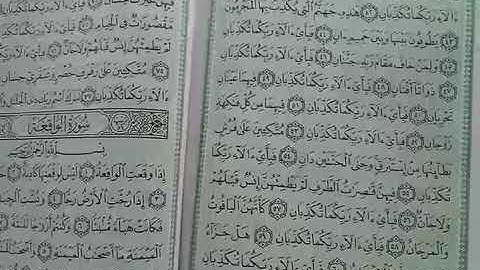 ءَالَآءِ رَبِّكُمَا تُكَذِّبَانِ ٤٢ هَٰذِهِۦ جَهَنَّمُ ٱلَّتِى يُكَذِّبُ بِهَا ٱلْمُجْرِمُونَ
٤٣ يَطُوفُونَ بَيْنَهَا وَبَيْنَ حَمِيمٍ ءَانٍ ٤٤ فَبِأَىِّ ءَالَآءِ رَبِّكُمَا تُكَذِّبَانِ
٤٥ وَلِمَنْ خَافَ مَقَامَ رَبِّهِۦ جَنَّتَانِ ٤٦ فَبِأَىِّ ءَالَآءِ رَبِّكُمَا تُكَذِّبَانِ
٤٧ ذَوَاتَآ أَفْنَانٍ ٤٨ فَبِأَىِّ ءَالَآءِ رَبِّكُمَا تُكَذِّبَانِ ٤٩ فِيهِمَا عَيْنَانِ
تَجْرِيَانِ ٥٠ فَبِأَىِّ ءَالَآءِ رَبِّكُمَا تُكَذِّبَانِ ٥١ فِيهِمَا مِن كُلِّ فَٰكِهَةٍ
زَوْجَانِ ٥٢ فَبِأَىِّ ءَالَآءِ رَبِّكُمَا تُكَذِّبَانِ ٥٣ مُتَّكِـِٔينَ عَلَىٰ فُرُشٍۭ
بَطَآئِنُهَا مِنْ إِسْتَبْرَقٍ وَجَنَى ٱلْجَنَّتَيْنِ دَانٍ ٥٤ فَبِأَىِّ ءَالَآءِ رَبِّكُمَا
تُكَذِّبَانِ ٥٥ فِيهِنَّ قَٰصِرَٰتُ ٱلطَّرْفِ لَمْ يَطْمِثْهُنَّ إِنسٌ قَبْلَهُمْ
وَلَا جَآنٌّ ٥٦ فَبِأَىِّ ءَالَآءِ رَبِّكُمَا تُكَذِّبَانِ ٥٧ كَأَنَّهُنَّ ٱلْيَاقُوتُ
وَٱلْمَرْجَانُ ٥٨ فَبِأَىِّ ءَالَآءِ رَبِّكُمَا تُكَذِّبَانِ ٥٩ هَلْ جَزَآءُ
فَبِأَىِّ ءَالَآءِ رَبِّكُمَا تُكَذِّبَانِ
مَّقْصُورَٰتٌ فِى ٱلْخِيَامِ
لَمْ يَطْمِثْهُنَّ إِنسٌ قَبْلَهُمْ وَلَا جَآنٌّ
٧٥ مُتَّكِـِٔينَ عَلَىٰ رَفْرَفٍ خُضْرٍ وَعَبْقَرِىٍّ حِسَانٍ
ءَالَآءِ رَبِّكُمَا تُكَذِّبَانِ ٧٧ تَبَٰرَكَ ٱسْمُ رَبِّكَ ذِى ٱلْجَلَٰلِ
سُورَةُ ٱلْوَاقِعَةِ
بِسْمِ ٱللَّهِ ٱلرَّحْمَٰنِ ٱلرَّحِيمِ
إِذَا وَقَعَتِ ٱلْوَاقِعَةُ ١ لَيْسَ لِوَقْعَتِهَا كَاذِبَةٌ
٣ إِذَا رُجَّتِ ٱلْأَرْضُ رَجًّا ٤ وَبُسَّتِ ٱلْجِبَالُ
فَكَانَتْ هَبَآءً مُّنۢبَثًّا ٦ وَكُنتُمْ أَزْوَٰجًا ثَلَٰثَةً
ٱلْمَيْمَنَةِ مَآ أَصْحَٰبُ ٱلْمَيْمَنَةِ ٨ وَأَصْحَٰبُ